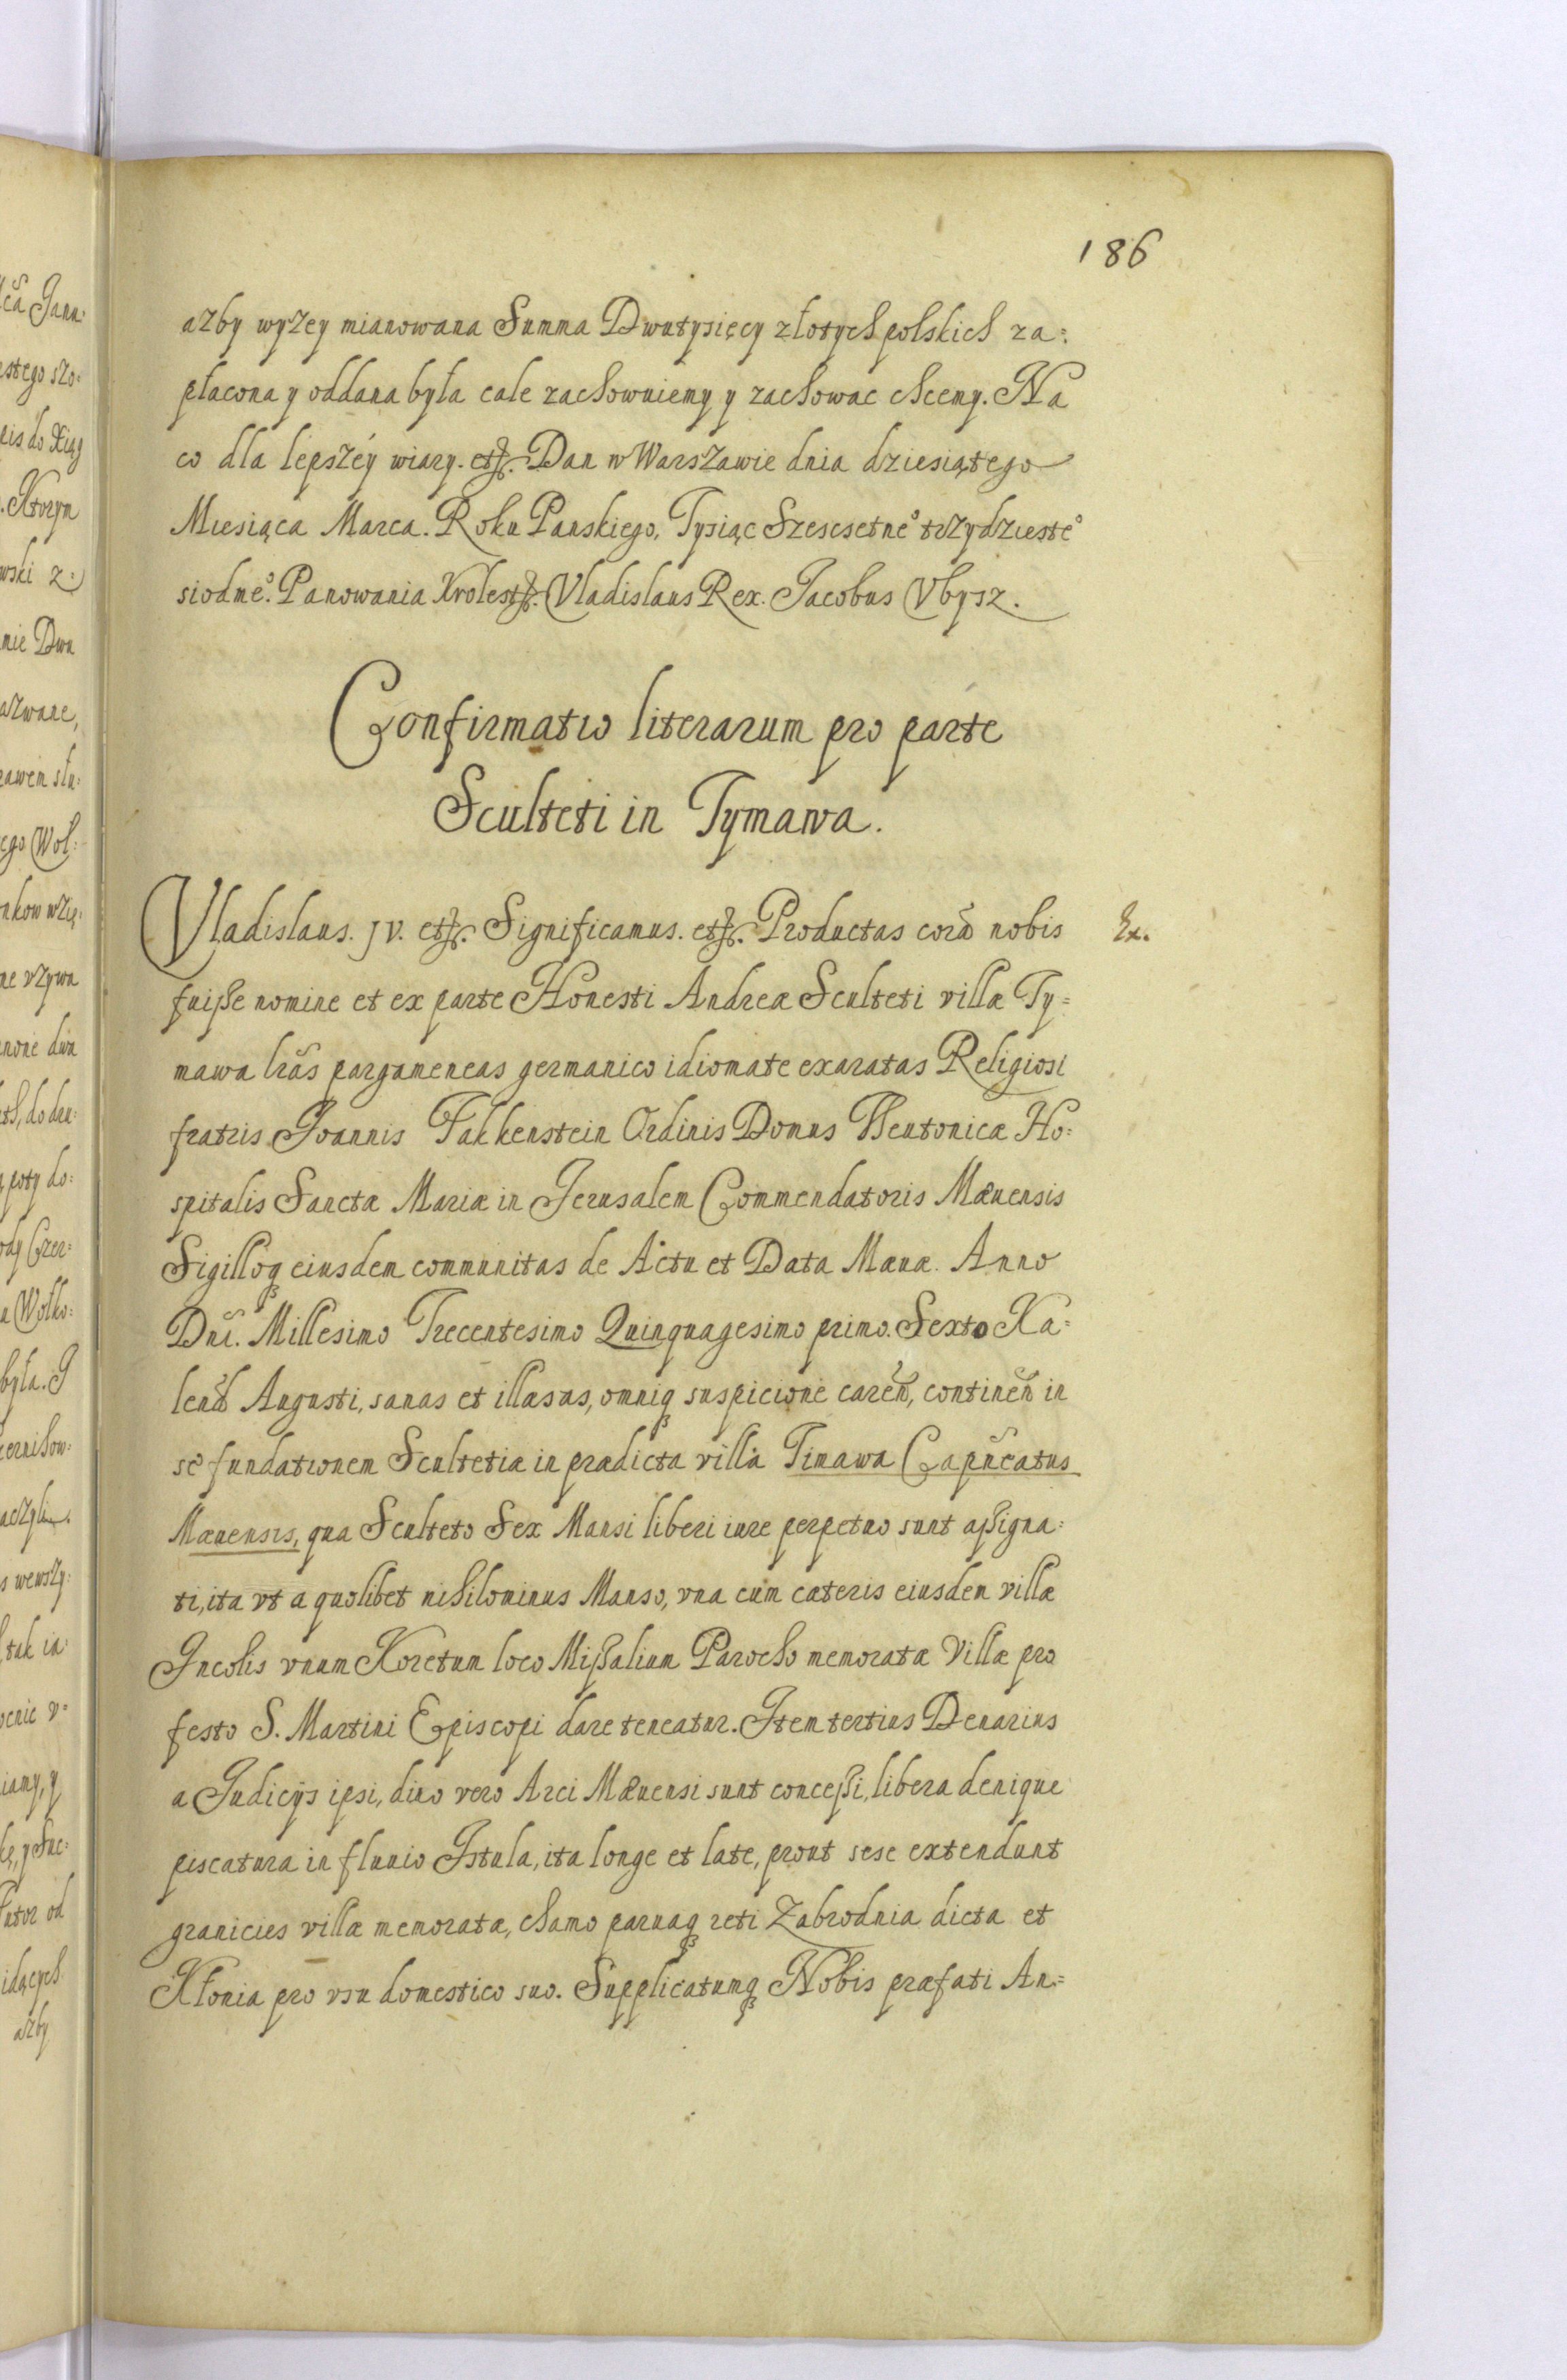 186
azby wyzey mianowana Summa Dwutysięcy złotych polskich za:
płacona y oddana była cale zachowuiemy y zachowac chcemy. Na
co dla lepszéy wiary. etc. Dan w Warszawie dnia dziesiątego
Miesiąca Marca. Roku Panskiego, Tysiąc Szescsetne° trzydzieste°
siodme°. Panowania Krolestw. Vladislaus Rex. Jacobus Vbysz.
Confirmatio literarum pro parte
Sculteti in Tymawa.
Vladislaus. IV. etc. Significamus. etc. Productas corã nobis Ex.
fuiße nomine et ex parte Honesti Andreæ Sculteti villæ Ty=
mawa lrãs pargameneas germanico idiomate exaratas Religiosi
fratris Joannis Falkenstein Ordinis Domus Theutonicæ Ho:
spitalis Sanctæ Mariæ in Jerusalem Commendatoris Mævensis
Sigilloq eiusdem communitas de Actu et Data Mævæ. Anno
Dni. Millesimo Trecentesimo Quinquagesimo primo. Sexto Ka=
lend Augusti, sanas et illæsas, omniq suspicione caren, continen in
se fundationem Scultetiæ in prædicta villa Timawa Capneatus
Mævensis, qua Sculteto Sex Mansi liberi iure perpetuo sunt aßigna:
ti, ita vt a quolibet nihilominus Manso, vna cum cæteris eiusdem villæ
Incolis vnum Koretum loco Mißalium Parocho memoratæ Villæ pro
festo S. Martini Episcopi dare teneatur. Item tertius Denarius
a Judicijs ipsi, duo vero Arci Mævensi sunt conceßi, libera denique
piscatura in fluuio Istula, ita longe et late, prout sese extendunt
granicies villæ memoratæ, chamo paruaq reti Zabrodnia dicta et
Kłonia pro vsu domestico suo. Supplicatumq Nobis præfati An=